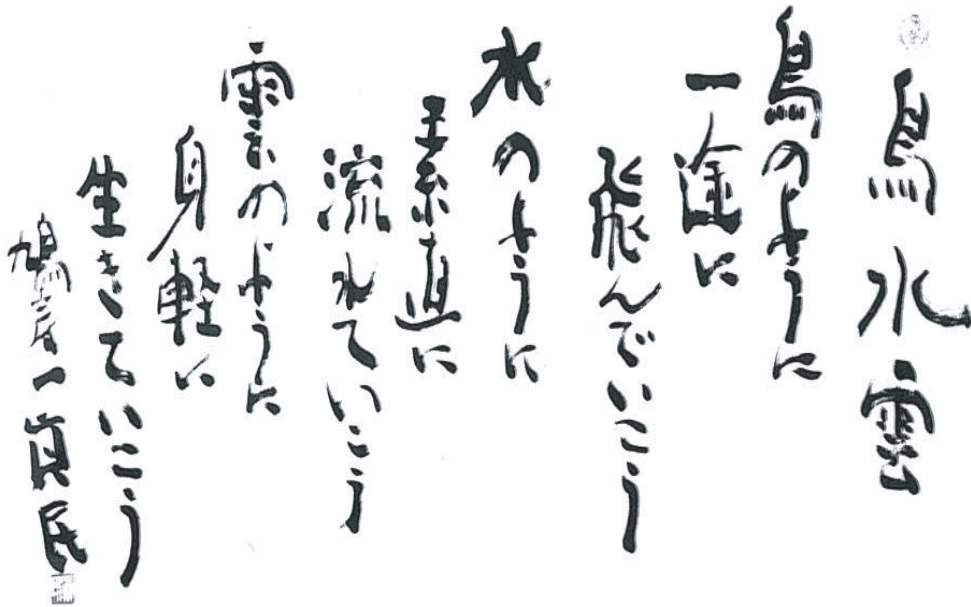 鳥水雲
鳥のように
一途に
飛んでいこう
水のように
素直に
流れていこう
雲のように
身軽に
生きていこう
一真民